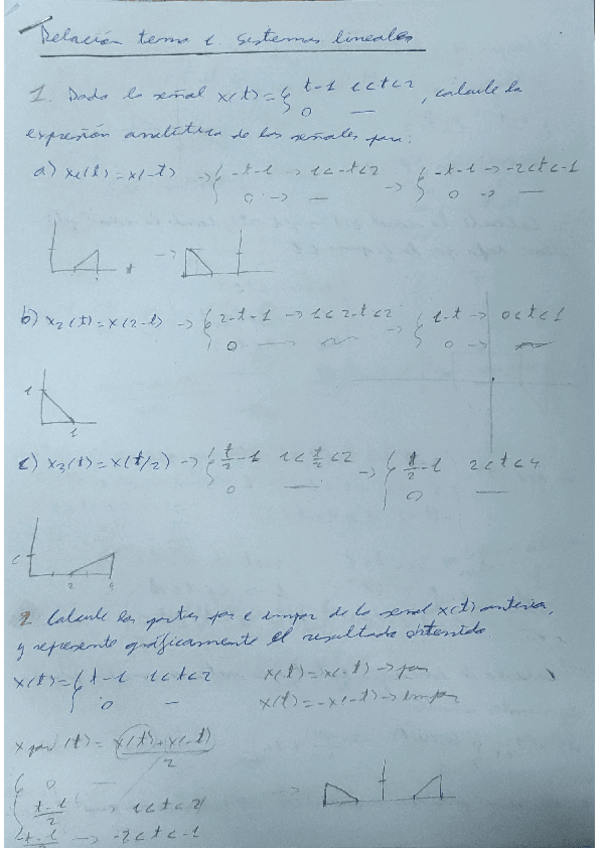 Relación tema 1. Sistemas lineales
1. Dada la señal x(t) = { t-1 1<t<2 , calcule la
0 —
expresión analítica de las señales para:
a) x₁(t) = x(-t) → { -t-1 → 1<-t<2 → { -t-1 → -2<t<-1
0 → — 0 → —
t →
b) x₂(t) = x(2-t) → { 2-t-1 → 1<2-t<2 → { 1-t → 0<t<1
0 — 0 →
1
1
c) x₃(t) = x(t/2) → { t/2 -1 1<t/2<2 → { t/2 -1 2<t<4
0 — 0 —
2 4
2 Calcule las partes par e impar de la señal x(t) anterior,
y represente gráficamente el resultado obtenido.
x(t) = { t-1 1<t<2 x(t) = x(-t) → par
0 — x(t) = -x(-t) → impar
x par (t) = x(t)+x(-t) / 2
{ 0 —
t-1/2 → 1<t<2 →
-t-1/2 → -2<t<-1